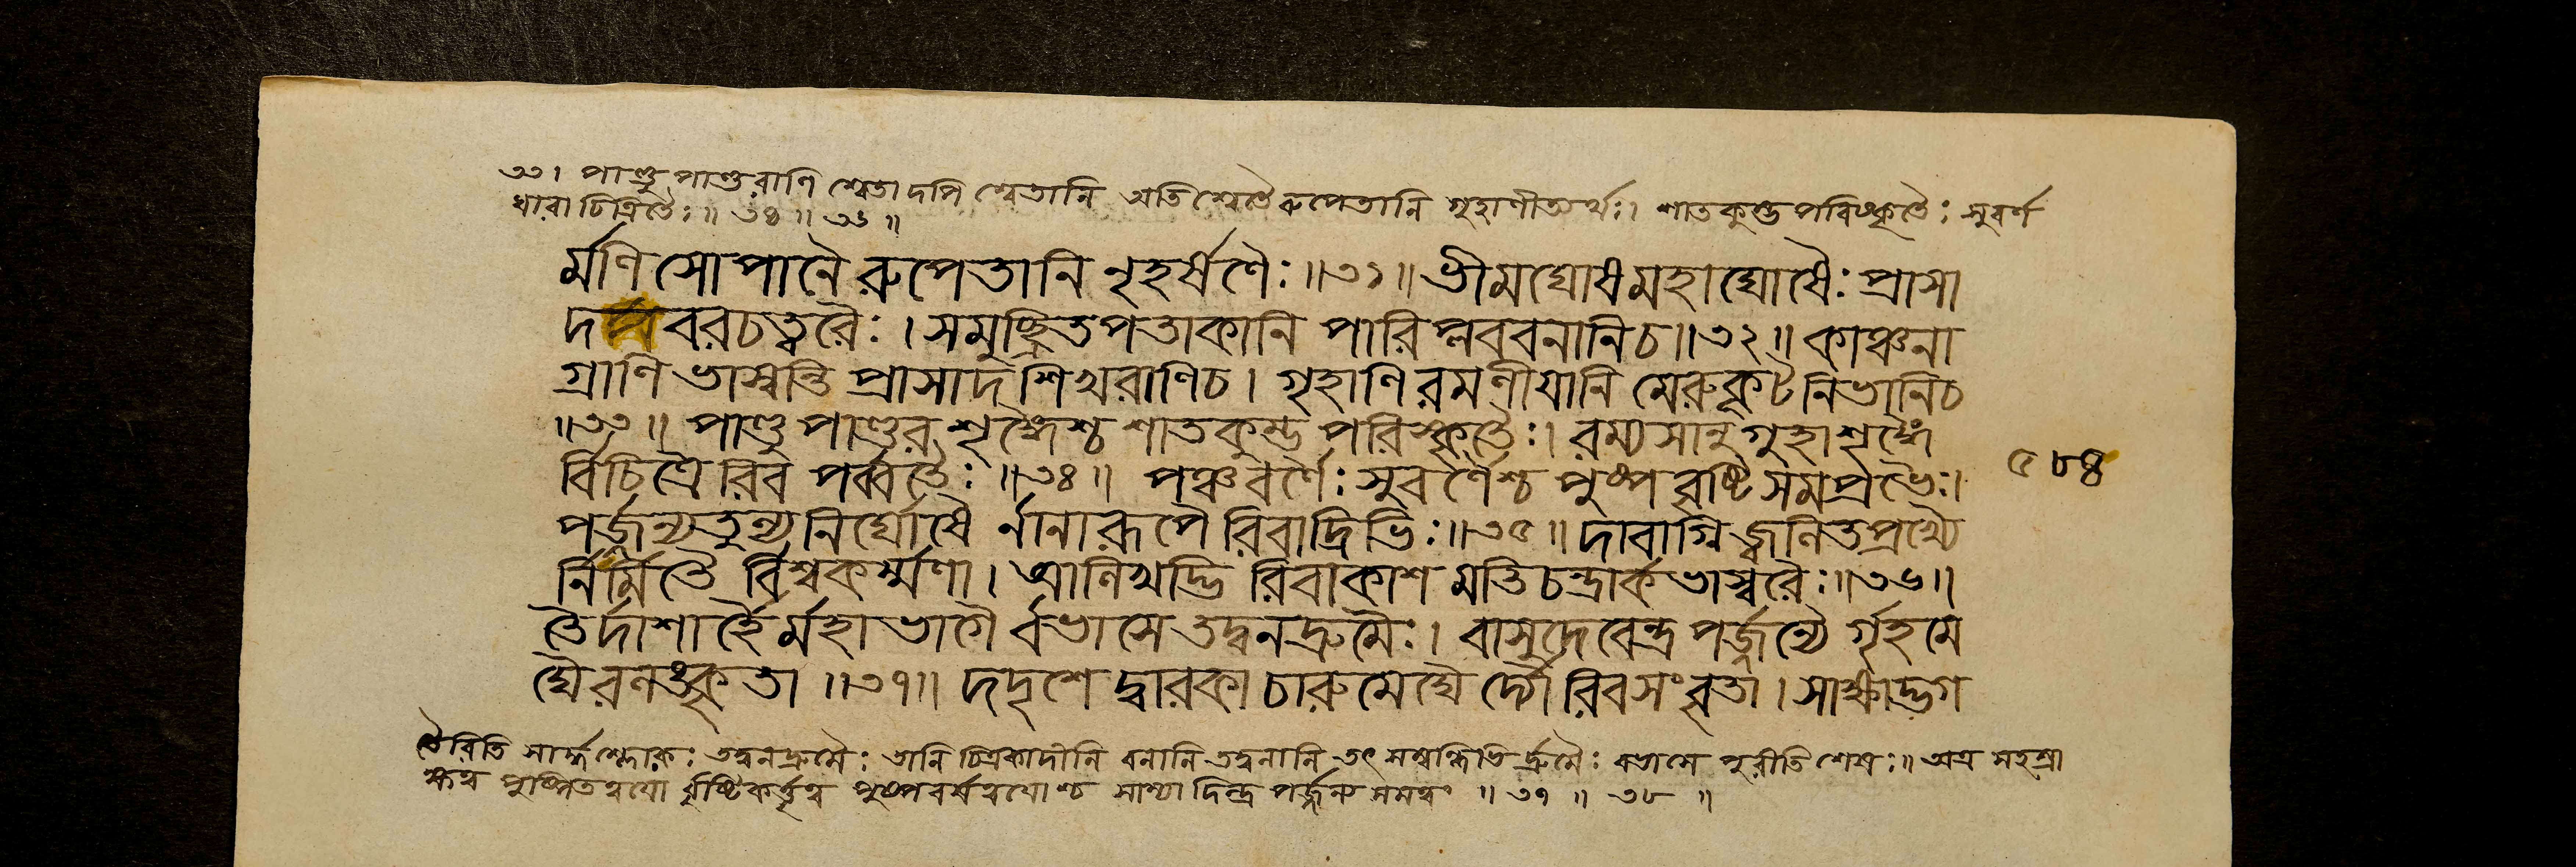 ৩৩। পাণ্ডু পাণ্ডরাণি শ্বেতাদপি শ্বেতানি অতিশ্বেতৈরুপেতানি গৃহাণীত্যর্থঃ। শাতকুম্ভপরিষ্কৃতৈঃ সুবর্ণ
ধারাচিত্রিতৈঃ॥ ৩৪॥ ৩৬॥
র্মণিসোপানৈরুপেতানি নৃহর্ষণৈঃ॥৩১॥ ভীমঘোষমহাঘোষৈঃ প্রাসা
দবরচত্বরৈঃ। সমুচ্ছ্রিতপতাকানি পারিপ্লববনানিচ॥৩২॥ কাঞ্চনা
গ্রাণি ভাস্বন্তি প্রাসাদশিখরাণিচ। গৃহাণি রমণীযানি মেরুকূটনিভানিচ
॥৩৩॥ পাণ্ডু পাণ্ডর শৃঙ্গৈশ্চ শাতকুম্ভ পরিস্কৃতৈঃ। রম্যসানুগুহাশৃঙ্গৈ
র্বিচিত্রৈরিব পর্ব্বতৈঃ॥৩৪॥ পঞ্চবর্ণৈঃ সুবর্ণৈশ্চ পুষ্পবৃষ্টিসমপ্রভৈঃ।
৫৮৪
পর্জন্যতুল্যনির্ঘোষৈ র্নানারূপৈরিবাদ্রিভিঃ॥৩৫॥ দাবাগ্নিজ্বলিতপ্রখ্যৈ
র্নির্মিতৈ র্বিশ্বকর্ম্মণা। আলিখদ্ভিরিবাকাশ মতিচন্দ্রার্কভাস্বরৈঃ॥৩৬॥
তৈর্দাশার্হৈর্মহাভাগৈ র্বভাসে তদ্বনদ্রুমৈঃ। বাসুদেবেন্দ্রপর্জ্জন্যৈ র্গৃহমে
ঘৈরলঙ্কৃতা॥৩৭॥ দদৃশে দ্বারকা চারুমেঘৈ র্দ্যৌরিবসংবৃতা। সাক্ষাদ্ভগ
তৈরিতি সার্দ্ধশ্লোকঃ তদ্বনদ্রুমৈঃ তানি চিত্রকাদীনি বনানি তদ্বনানি তৎ সম্বন্ধিভির্দ্রুমৈঃ বভাসে পুরীতি শেষঃ॥ অত্র সহস্রা
ক্ষত্ব পুষ্পিতত্বযো র্বৃষ্টিকর্তৃত্ব পুষ্পবর্ষত্বযোশ্চ সাম্যাদিন্দ্র পর্জ্জন্য সমত্বং॥ ৩৭॥ ৩৮॥